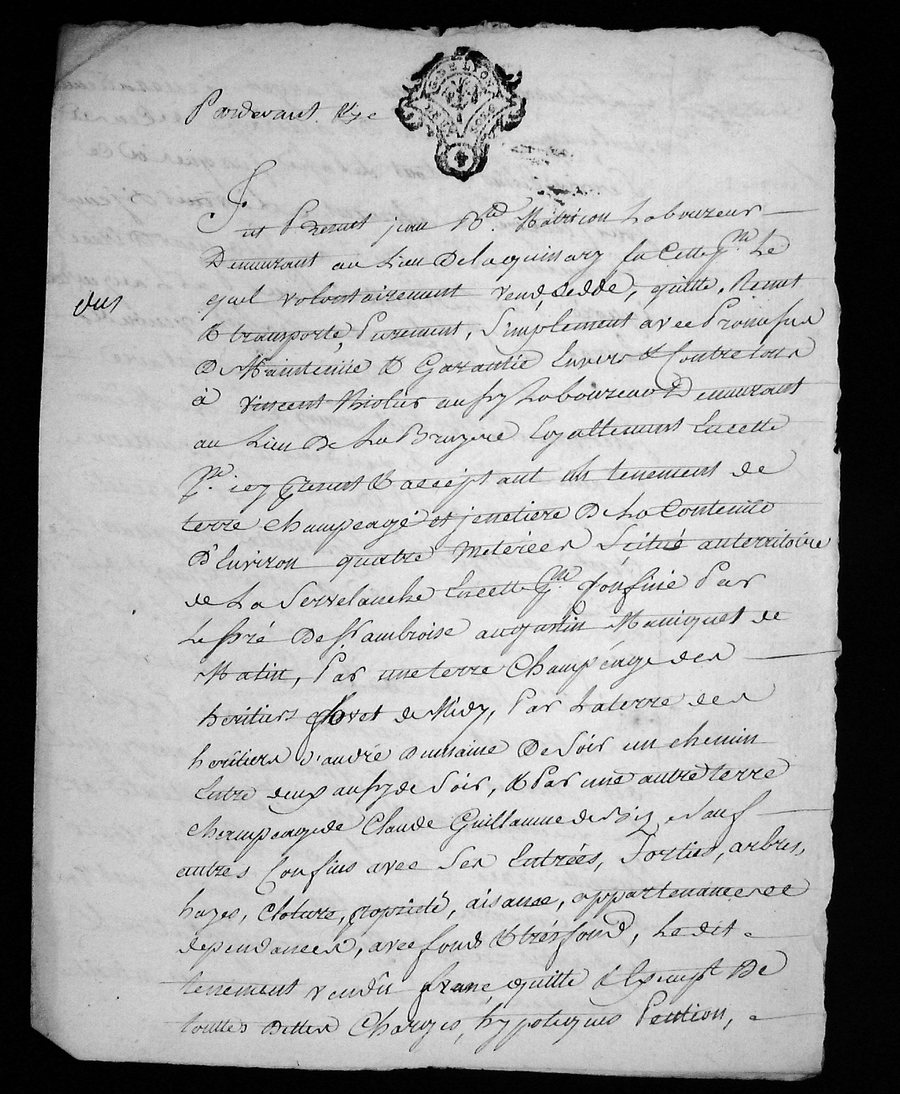 G. DE LYON
Pardevant &c
fut Present jean Bte Matricon Laboureur
Demeurant au Lieu De en Cette pse Le
quel volontairement vend, Cedde, quitte, Remet
& transporte, Purement, Simplement avec Promesse
De Maintenüe & Garantie Envers & Contre tous
à vincent Riolus aussy Laboureur Demeurant
au Lieu De La Bruyere Egallement En cette
pse icy present & acceptant un tenement de
terre champeagé et jenetiere De La Contenüe
D'Environ quatre Meterées Scitué au territoire
de La Servelanche En cette pse Confiné Par
Le Pré De Sr ambroise augustin Maniquet de
Matin, Par une terre Champéage des
heritiers de Midy, Par La terre des
héritiers d'andré Dumaine De Soir un chemin
Entre deux aussy de Soir, & Par une autre terre
Champeage de Claude Guillaume de Bize, Sauf
autres Confins avec Ses Entrées, Sorties, arbres,
hayes, cloture, propriété, aisance, appartenances et
dependances, avec fonds & tresfond, Le dit
tenement vendu franc, quitte & Exempt De
touttes Dettes Charges, hypoteques Pention,